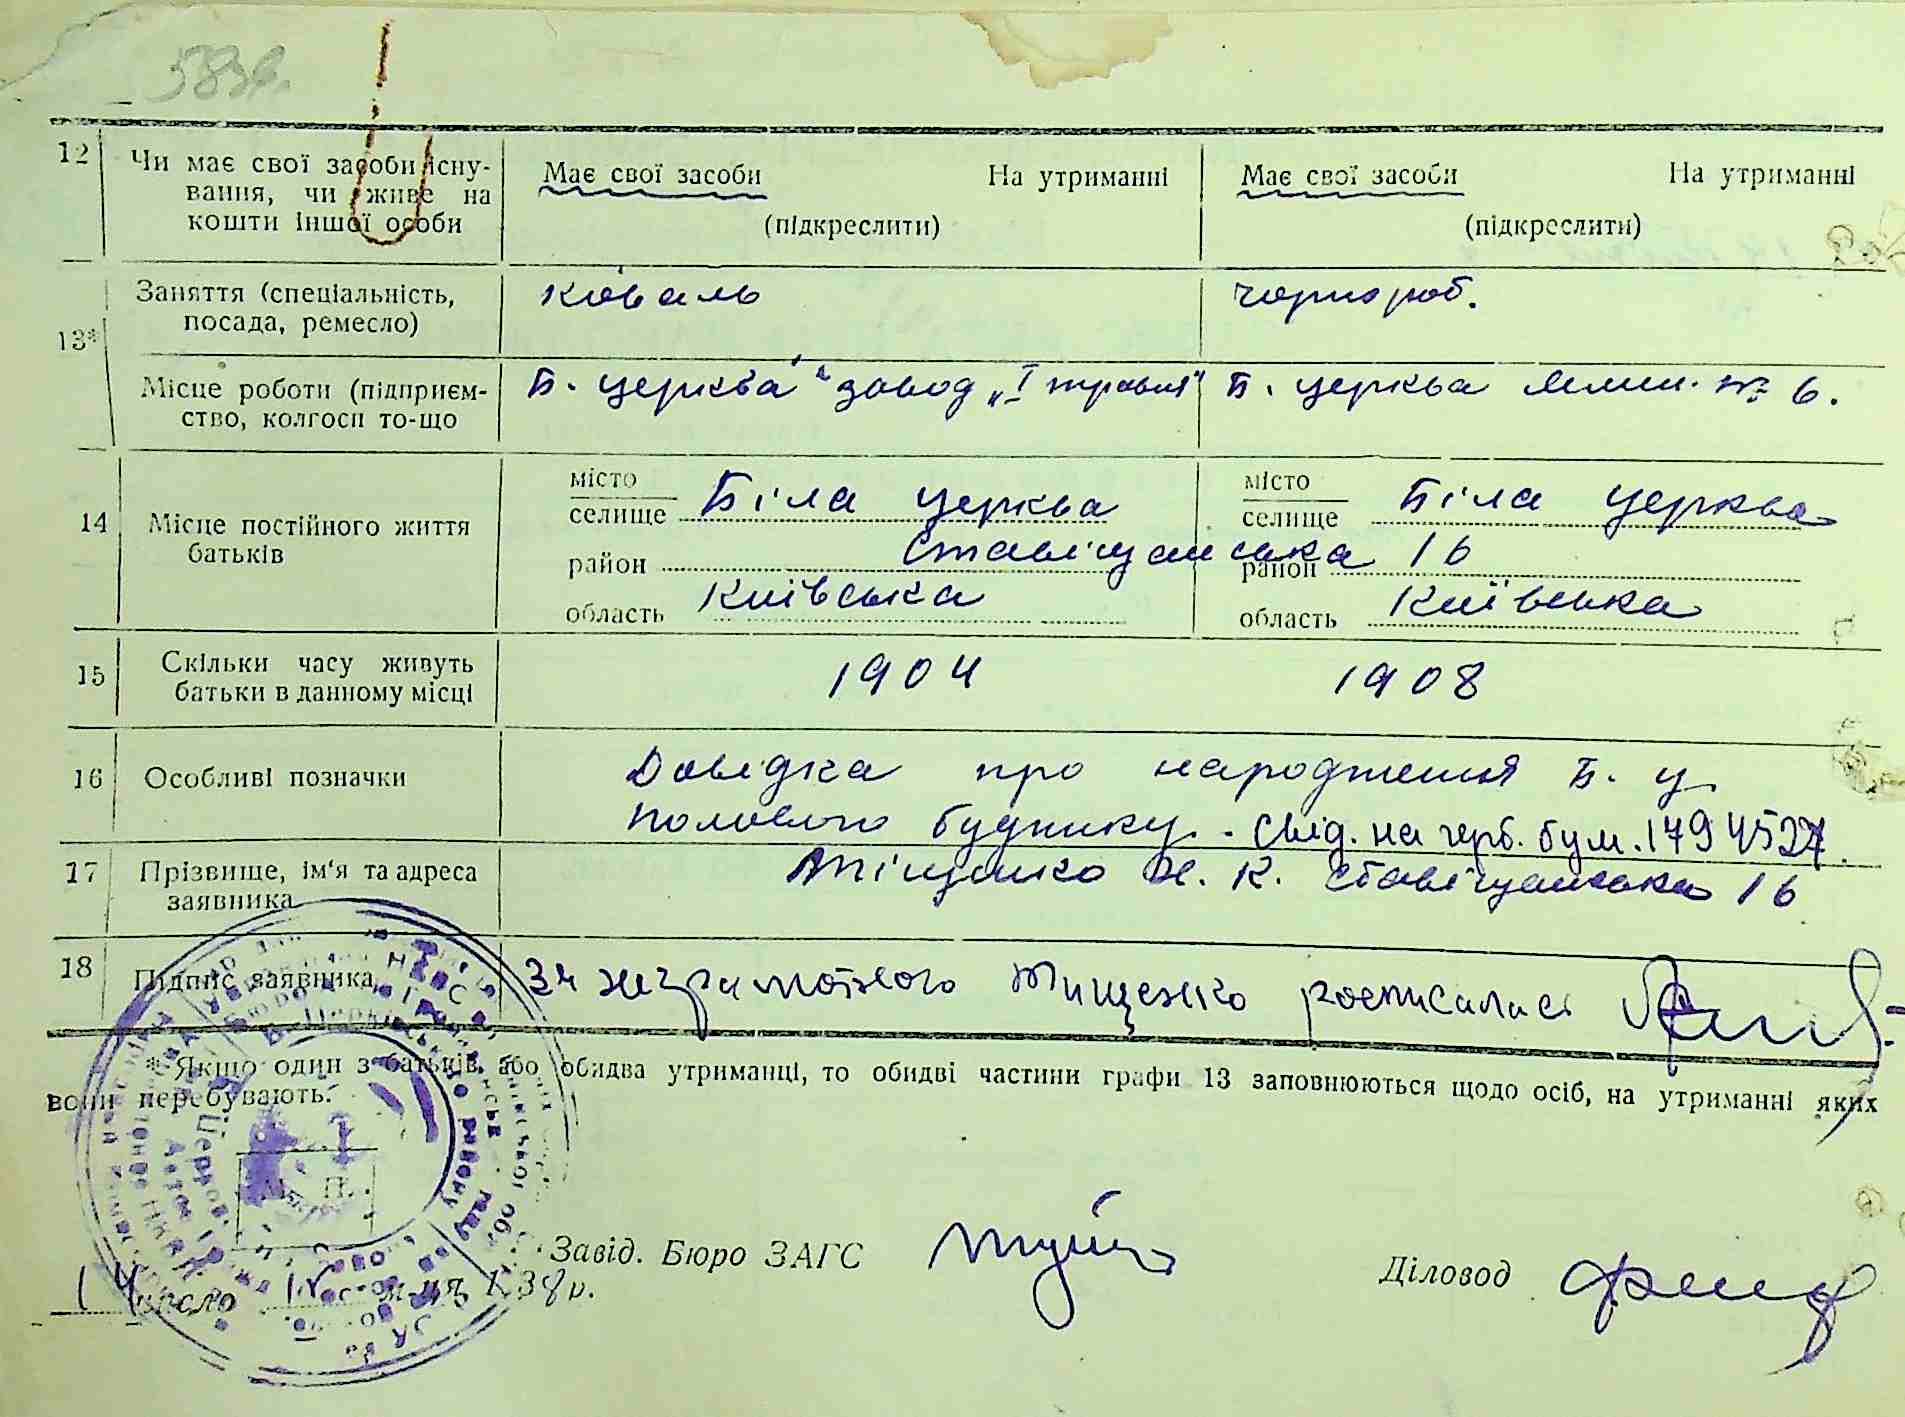 12 Чи має свої засоби існу-
вання, чи живе на
кошти іншої особи
Має свої засоби На утриманні
(підкреслити)
Має свої засоби На утриманні
(підкреслити)
13*
Заняття (спеціальність,
посада, ремесло)
коваль
чорнороб.
Місце роботи (підприєм-
ство, колгосп то-що
Б. церква завод „I травня"
Б. церква № 6.
14 Місце постійного життя
батьків
місто
селище Біла церква
район Ставіщанська 16
область Київська
місто
селище Біла церква
район
область Київська
15 Скільки часу живуть
батьки в данному місці
1904
1908
16 Особливі позначки
Довідка про народження Б. ц.
будинку. - Свід. на герб. бум. 1794527.
17 Прізвище, ім'я та адреса
заявника
Тіщенко К. Ставіщанська 16
18 Підпис заявника
За неграмотного Тищенко росписалась
* Якщо один з батьків, або обидва утриманці, то обидві частини графи 13 заповнюються щодо осіб, на утриманні яких
вони перебувають.
Завід. Бюро ЗАГС
Діловод
14 число м-ця 1938 р.